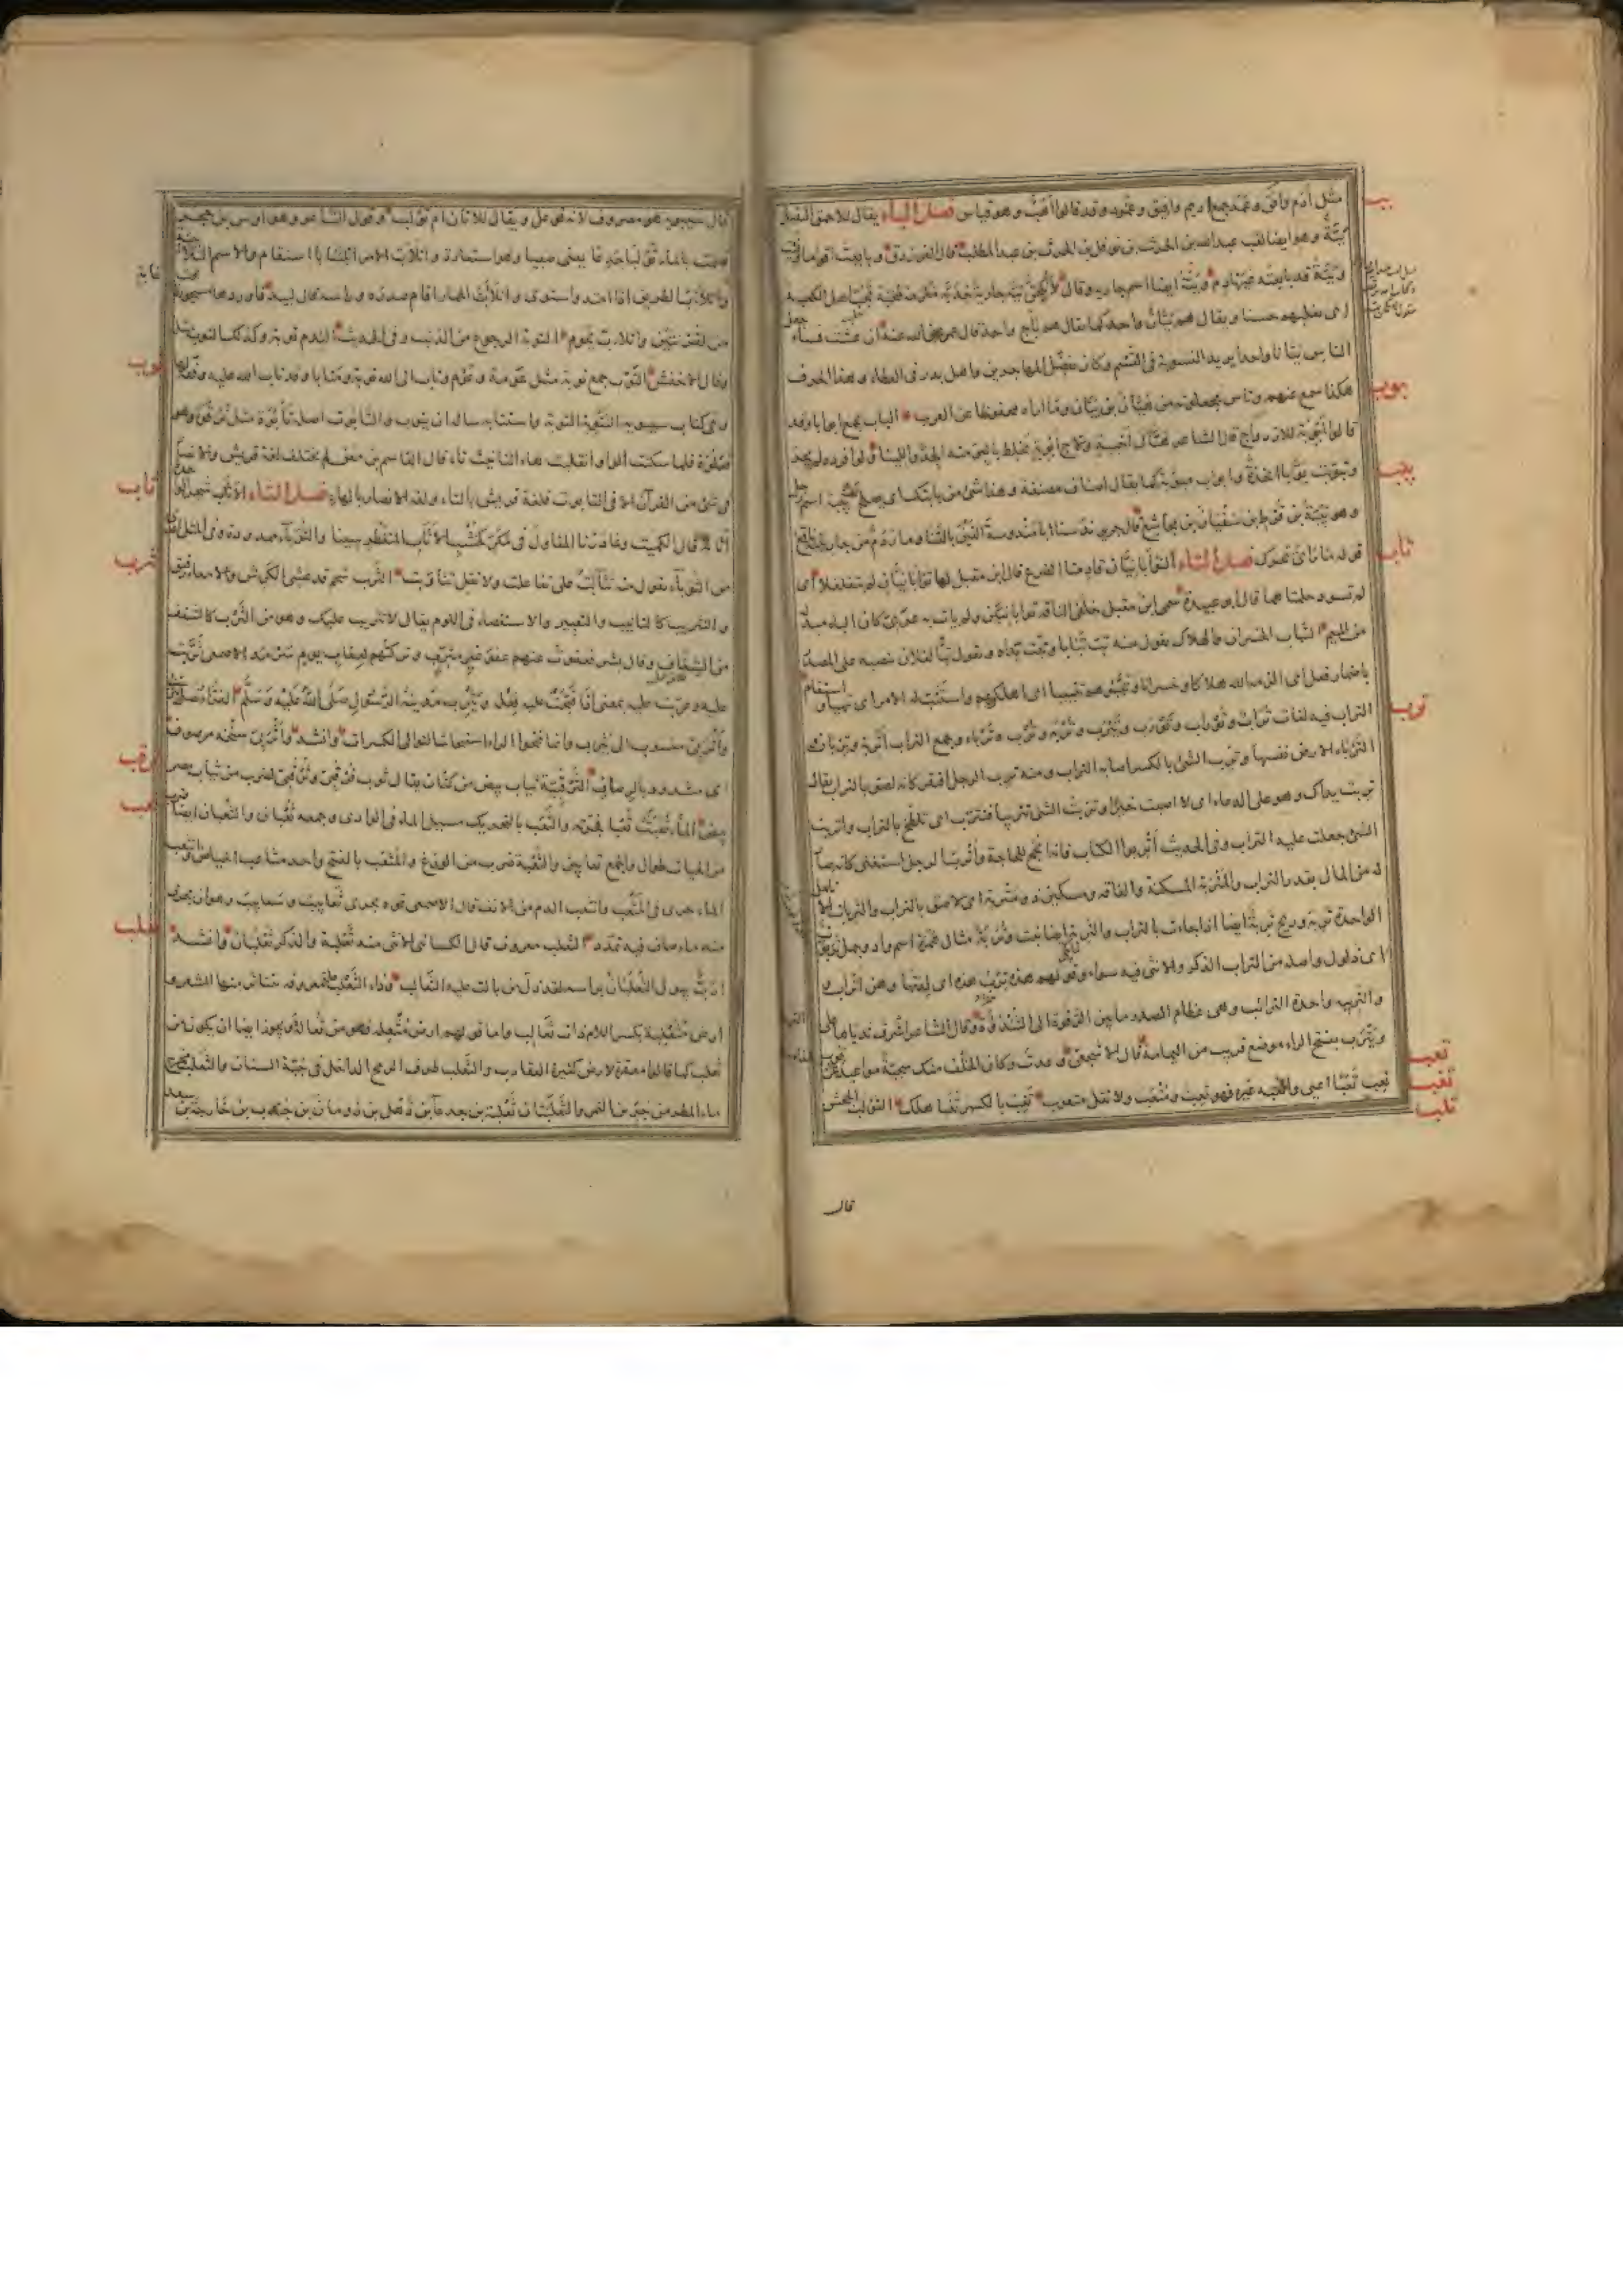 مثل أدم وأفق وعمد جمع اديم وافيق وعمود وقد قالوا أهب وهو قياس فصل الباء يقال للاحمق الثقيل
ببة وهو ايضا لقب عبدالله بن الحرث بن نوفل بن الحرث بن عبد المطلب قال الفرزدق وبايعت اقواما
وببة قد بايعته غير نادم وببة ايضا اسم جارية وقال لأنكحن ببة جارية خدبة مكرمة محبة تجب اهل الكعبة
اى تغلبهم حسنا ويقال هم ببان واحد كما يقال هم بأج واحد قال عمر رضي الله عنه ان عشت فسأجعل
الناس ببانا واحدا يريد التسوية فى القسم وكان يفضل المهاجرين واهل بدر فى العطاء وهذا الحرف
هكذا سمع منهم وناس يجعلونه من هيان بن بيان وما اراه محفوظا عن العرب الباب يجمع ابوابا وقد
قالوا أبوبة للازدواج قال الشاعر هتاك أخبية ولاج أبوبة يخلط بالبر منه الجد واللينا ولو افرده لم يجز
وتبوبت بوابا اتخذته وابواب مبوبة كما يقال اصناف مصنفة وهذا شئ من بابتك اى يصلح لك بيبة اسم رجل
وهو بيبة بن قرط بن سفيان بن مجاشع قال جرير ندسنا ابا مندوسة القين بالقنا ومار دم من جار بيبة ناقع
قوله مار اى تحرك فصل التاء التوأبانيان قادمتا الضرع قال ابن مقبل لها توأبانيان لم يتفلفلا أى
لم تسود حلمتاهما قال ابو عبيدة سمى ابن مقبل خلفى الناقة توأبانيين ولم يأت به عربى كان الباء مبدلة
من الميم التباب الخسران والهلاك يقول منه تبت تبابا وتبت يداه وتقول تبا لفلان تنصبه على المصدر
باضمار فعل اى الزمه الله هلاكا وخسرانا وتببوهم تتبيبا اى اهلكوهم واستتب له الامر اى تهيأ واستقام
التراب فيه لغات تراب وتوراب وتورب وتيرب وترب وتربة وترباء وجمع التراب أتربة وتربان
الترباء الارض نفسها وترب الشئ بالكسر اصابه التراب ومنه ترب الرجل افتقر كانه لصق بالتراب يقال
تربت يداك وهو على الدعاء اى لا اصبت خيرا وتربت الشئ تتريبا فتترب اى تلطخ بالتراب واتربت
الشئ جعلت عليه التراب وفى الحديث أتربوا الكتاب فانه انجح للحاجة وأترب الرجل استغنى كانه صار
له من المال بقدر التراب والمتربة المسكنة والفاقة ومسكين ذو متربة اى لاصق بالتراب والتربات الانامل
الواحدة تربة وريح تربة ايضا اذا جاءت بالتراب والتربة ايضا نبت وتربة مثال همزة اسم واد وجمل تربوت
اى ذلول واصله من التراب الذكر والانثى فيه سواء وقولهم هذه ترب هذه اى لدتها وهن اتراب
والتريبة واحدة الترائب وهى عظام الصدر ما بين الترقوة الى الثندؤة وقال الشاعر اشرف ثدياها على
ويترب بفتح الراء موضع قريب من اليمامة قال الاشجعى وعدت وكان الخلف منك سجية مواعيد
تعب تعبا اعيى واتعبه غيره فهو تعب ومتعب ولا تقل متعوب تغب بالكسر تغبا هلك التولب الجحش
قال
ببب
بوب
ببب
تأب
توب
تعب
تغب
تلب
قال سيبويه هو مصروف لانه فوعل ويقال للاتان ام تولب وقول الشاعر وهو اوس بن حجر
تصمت بالماء تولبا جدعا يعنى صبيا وهو استعارة واتلأب الامر اتلئبابا استقام والاسم التلأبيبة
واتلأب الطريق اذا امتد واستوى واتلأب الحمار اقام صدره وراسه قال لبيد فاوردها مسجورة تحت غابة
من القرنتين واتلأب يحوم التوبة الرجوع من الذنب وفى الحديث الندم توبة وكذلك التوب مثله
وقال الاخفش التوب جمع توبة مثل عومة وعوم وتاب الى الله توبة ومتابا وقد تاب الله عليه وفقه لها
وفى كتاب سيبويه التتوبة التوبة واستتابه ساله ان يتوب والتابوت اصله تأبوة مثل ترقوة وهو
فعلوة فلما سكنت الواو انقلبت هاء التانيث تاء قال القاسم بن معن لم يختلف لغة قريش والانصار
فى شئ من القرآن الا فى التابوت فلغة قريش بالتاء ولغة الانصار بالهاء فصل الثاء الاثأب شجر الواحدة
أثأبة قال الكميت وغادرنا المقاول فى مكر كخشب الاثأب المتغطرسينا والثؤباء ممدودة وفى المثل اعدى
من الثوباء يقول منه تثاءبت على تفاعلت ولا تقل تثاوبت الثرب شحم قد غشى الكرش والامعاء رقيق
والتثريب كالتانيب والتعيير والاستقصاء فى اللوم يقال لا تثريب عليك وهو من الثرب كالشغف
من الشغاف وقال بشر فعفوت عنهم عفو غير مثرب وتركتهم لعقاب يوم سرمد الاصمعى ثربت
عليه وعربت عليه بمعنى اذا قبحت عليه فعله ويثرب مدينة الرسول صلى الله عليه وسلم
وأثربى منسوب الى يثرب وانما فتحوا الراء استيحاشا لتوالى الكسرات وانشد واثربى سنخه مرصوف
اى مشدود بالرصاف الثرقبية ثياب بيض من كتان يقال ثوب ثرقبى وفرقبى لضرب من ثياب مصر
بيض ثعبت الماء ثعبا فجرته والثعب بالتحريك مسيل الماء فى الوادى وجمعه ثعبان والثعبان ايضا ضرب
من الحيات طوال والجمع ثعابين والثعبة ضرب من الوزغ والمثعب بالفتح واحد مثاعب الحياض وانثعب
الماء جرى فى المثعب وانثعب الدم من الانف قال الاصمعى فوه يجرى ثعابيب وسعابيب وهو ان يجرى
منه ماء صاف فيه تمدد الثعلب معروف قال الكسائى الانثى منه ثعلبة والذكر ثعلبان وانشد
أرب يبول الثعلبان براسه لقد ذل من بالت عليه الثعالب وداء الثعلب علة معروفة يتناثر منها الشعر و
ارض مثعلبة بكسر اللام ذات ثعالب واما قولهم ارض مثعلة فهو من ثعالة ويجوز ايضا ان يكون من
ثعلب كما قالوا معقرة لارض كثيرة العقارب والثعلب طرف الرمح الداخل فى جبة السنان والثعلب مخرج
ماء المطر من جرين التمر والثعلبتان ثعلبة بن جدعاء بن ذهل بن رومان بن جندب بن خارجة بن سعد
غابة
توب
ثأب
ثرب
ثرقب
ثعب
ثعلب